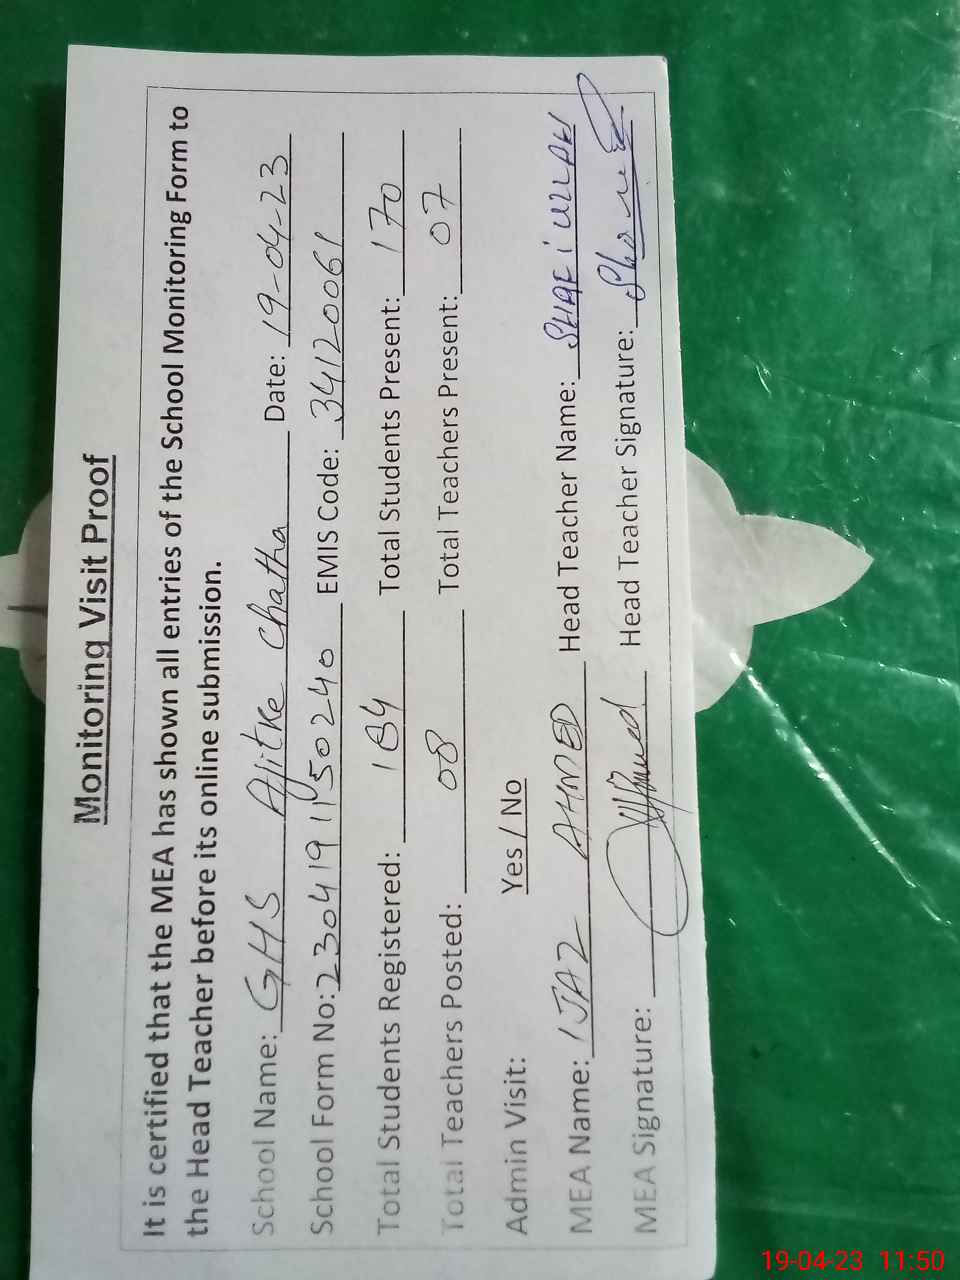 Monitoring Visit Proof
It is certified that the MEA has shown all entries of the School Monitoring Form to
the Head Teacher before its online submission.
School Name: GHS Ajitke Chatha Date: 19-04-23
School Form No: 2304191150240 EMIS Code: 34120061
Total Students Registered: 184 Total Students Present: 170
Total Teachers Posted: 08 Total Teachers Present: 07
Admin Visit: Yes / No
MEA Name: IJAZ AHMED Head Teacher Name: SHAFiULLAH
MEA Signature: Head Teacher Signature:
19-04-23 11:50